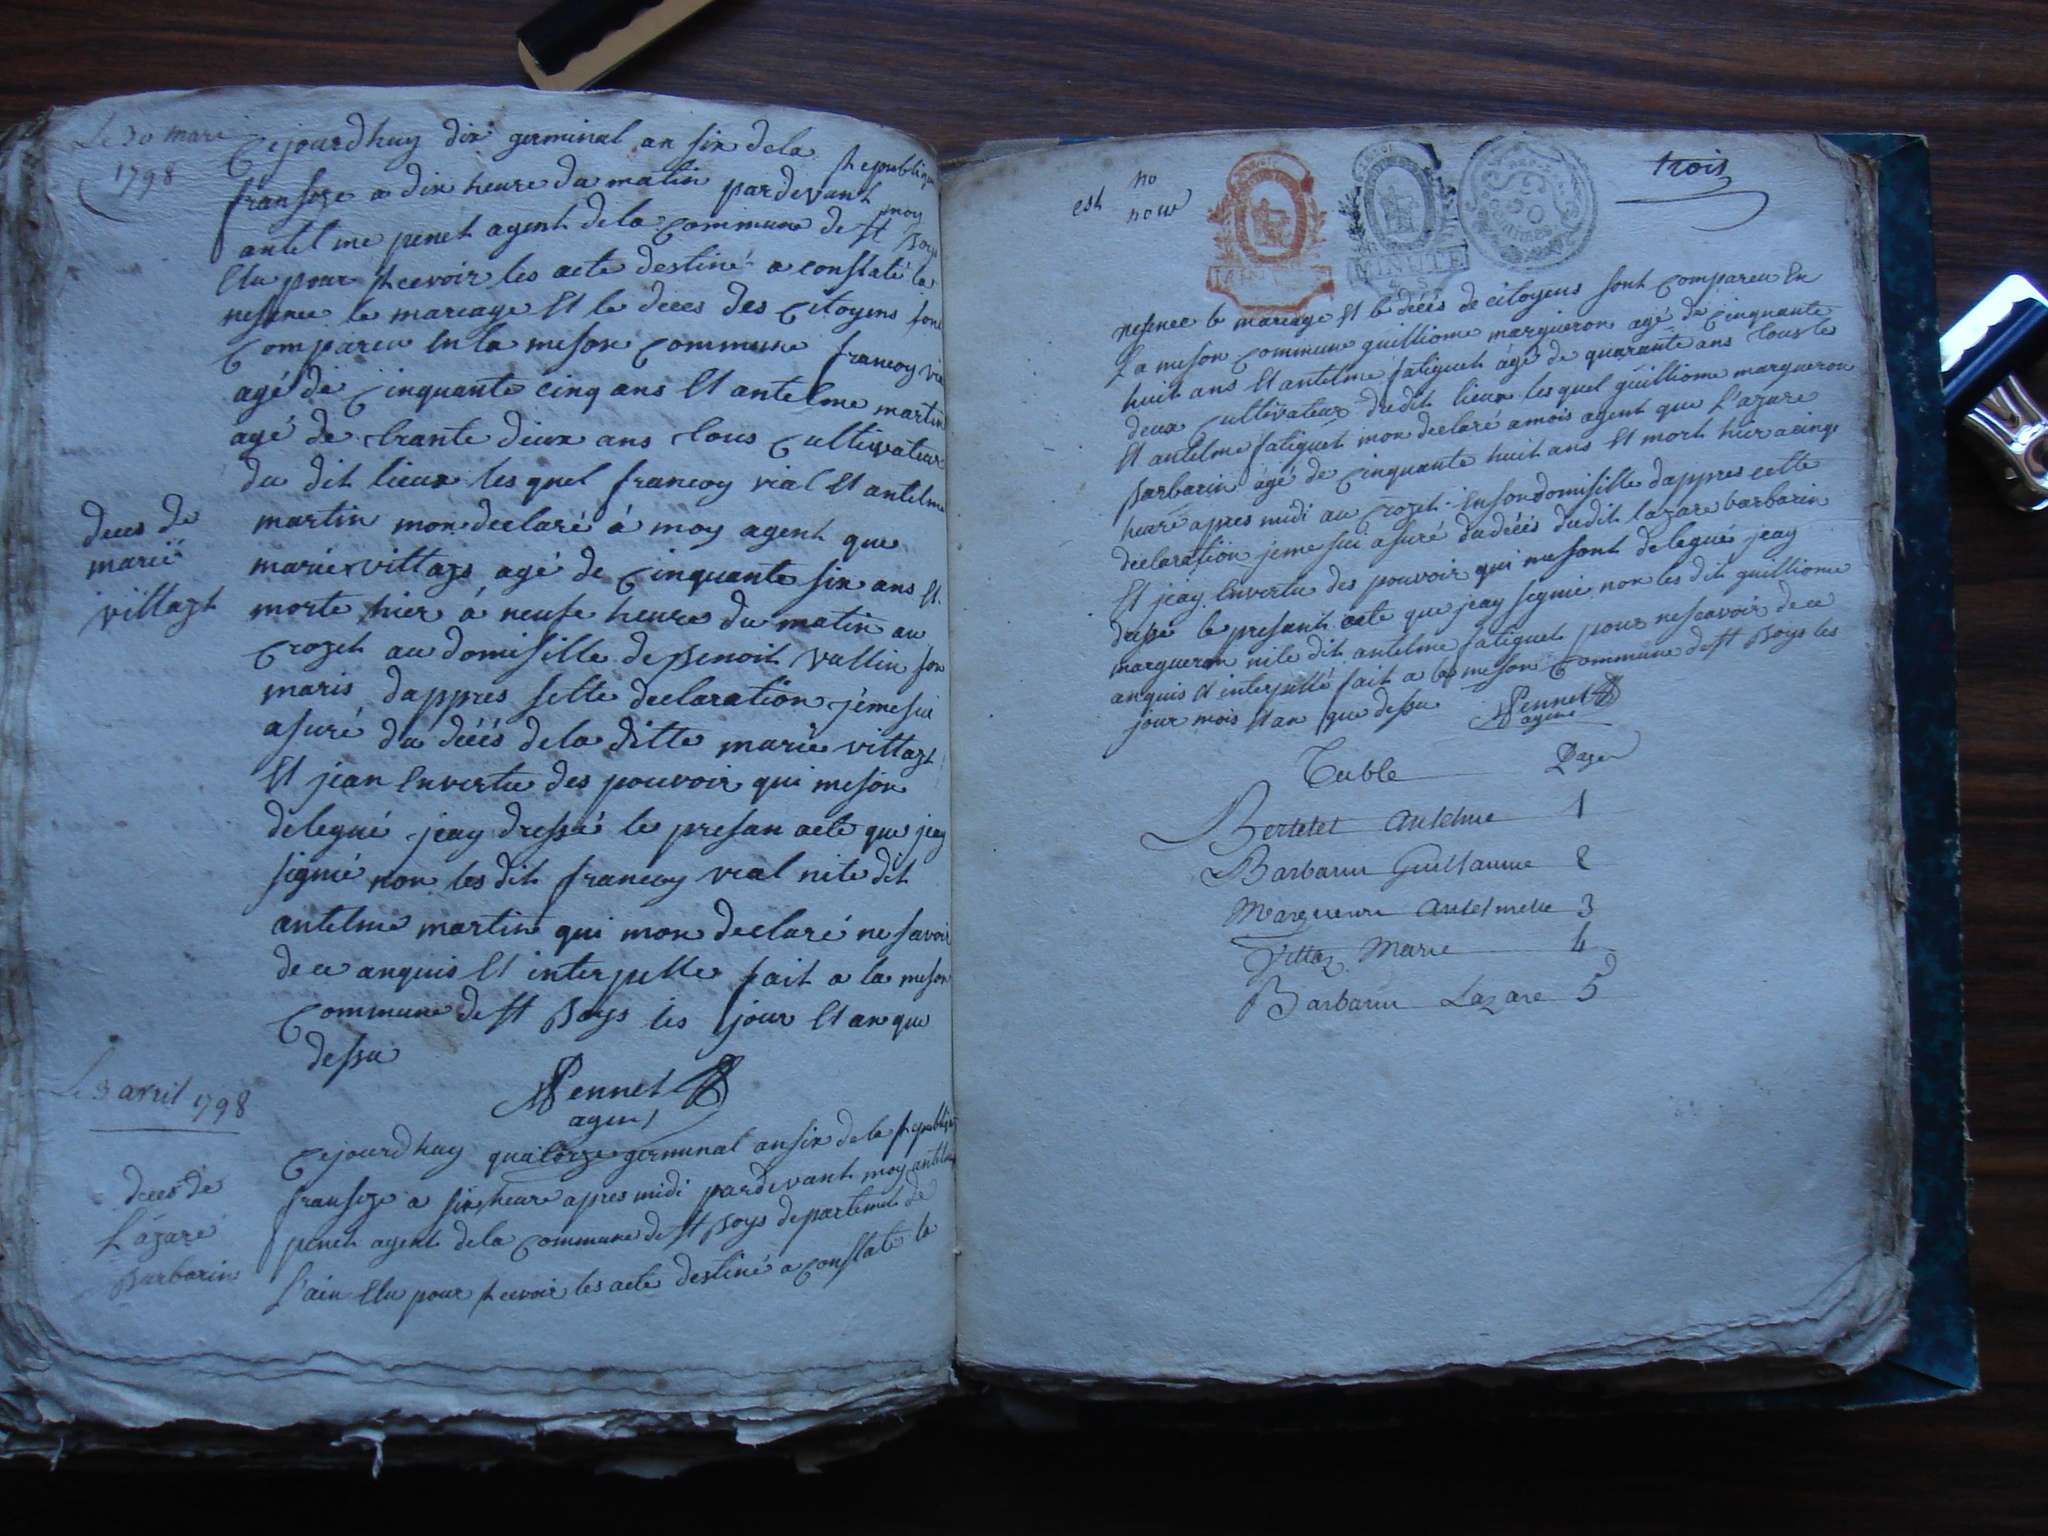 Le 30 mars
1798
Cejourdhuy dix germinal an six de la republique
fransoze a dix heure du matin pardevant moy
antelme penet agent de la commune de st boys
Elu pour recevoir les acte destiné a constaté la
nesance le mareage Et le deces des citoyens sont
compareu En la meson commune francoy vial
agé de cinquante cinq ans Et antelme martin
agé de trante deux ans tous cultivateur
du dit lieux lesquel francoy vial Et antelme
martin mon declaré á moy agent que
marie vittaz agé de cinquante six ans Et
morte hier á neufe heure du matin au
crozet au domisille de Benoit vullin son
maris dappres sette declaration jemesui
asuré du déés de la ditte marie vittazt
Et jean Envertu des pouvoir qui meson
delegué jeay dressé le presan acte que jeay
signié non les dit francoy vial nile dit
antelme martin qui mon declaré ne savoir
de ce anquis Et interpelle fait a la meson
commune de st Boys les jour Et an que
dessu
Pennet
agent
deces de
marie
vittazt
Le 3 avril 1798
Cejourdhuy quatorze germinal an six de la republique
fransoze a six heure apres midi pardevant moy antelme
penet agent de la commune de st Boys departement de
l'ain Elu pour recevoir les acte destiné a constaté la
deces de
Lazare
Barbarin
est no
nove
MINUTE
50
centimes
trois
nesence le mareage Et le déés de citoyens sont compareu En
La meson commune guilliome margueron agé de cinquante
huit ans Et antelme fatiguet agé de quarante ans tous le
deux cultivateur dudit lieux lesquel guilliome margueron
Et antelme fatiguet mon declaré a mois agent que Lazare
Barbarin agé de cinquante huit ans Et mort hier a cinq
heure apres midi au crozet En son domisille dappres cette
declaration jemesui asuré du déés dudit lazare barbarin
Et jeay Envertu des pouvoir qui me sont delegué jeay
dressé le presant acte que jeay signié non les dit guilliome
margueron nile dit antelme fatiguet pour ne scavoir de ce
anquis Et interpellé fait a la meson commune de st Boys les
jour mois Et an que dessu
Pennet
agent
Table Pages
Bertetet Antelme 1
Barbarin Guillaume 2
Margueron Antelmette 3
Vittaz Marie 4
Barbarin Lazare 5